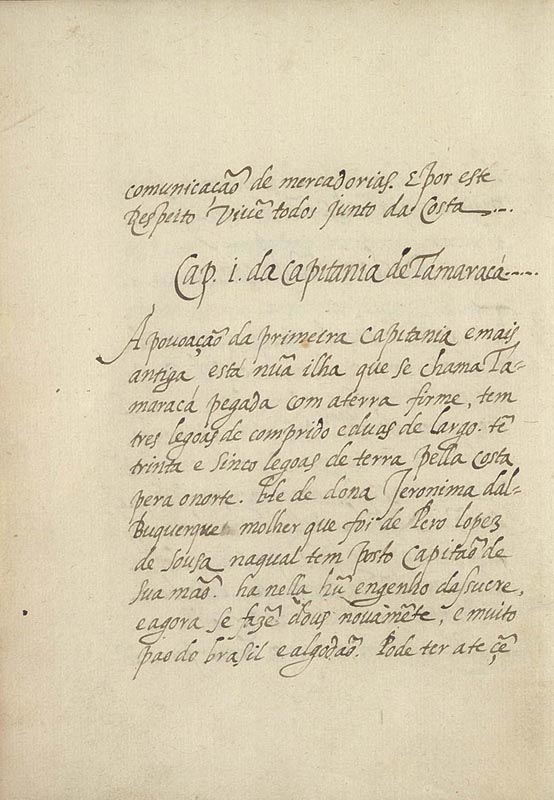 comunicação de mercadorias. E por este
Respeito Viuẽ todos junto da Costa
Cap. 1. da Capitania de Tamaracá
A pouoação da primeira capitania e mais
antiga está nũa ilha que se chama Ta-
maracá pegada com aterra firme, tem
tres legoas de comprido e duas de largo. tẽ
trinta e sinco legoas de terra pella costa
pera onorte. He de dona Jeronima dal-
Buquerque molher que foi de Pero lopez
de Sousa naqual tem posto Capitaõ de
sua maõ. ha nella hũ engenho dassucre,
e agora se fazẽ dous nouamẽte, e muito
pao do brasil e algodaõ. Pode ter ate cẽ